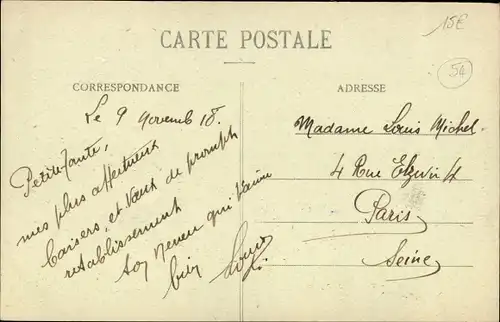 15E
54
CARTE POSTALE
CORRESPONDANCE
Le 9 Novemb 18.
Petite Tante,
mes plus affectueux
baisers, et vœux de prompt
rétablissement
ton neveu qui t'aime
bien Louis
ADRESSE
Madame Louis Michel
4 Rue Elzévir 4
Paris
Seine